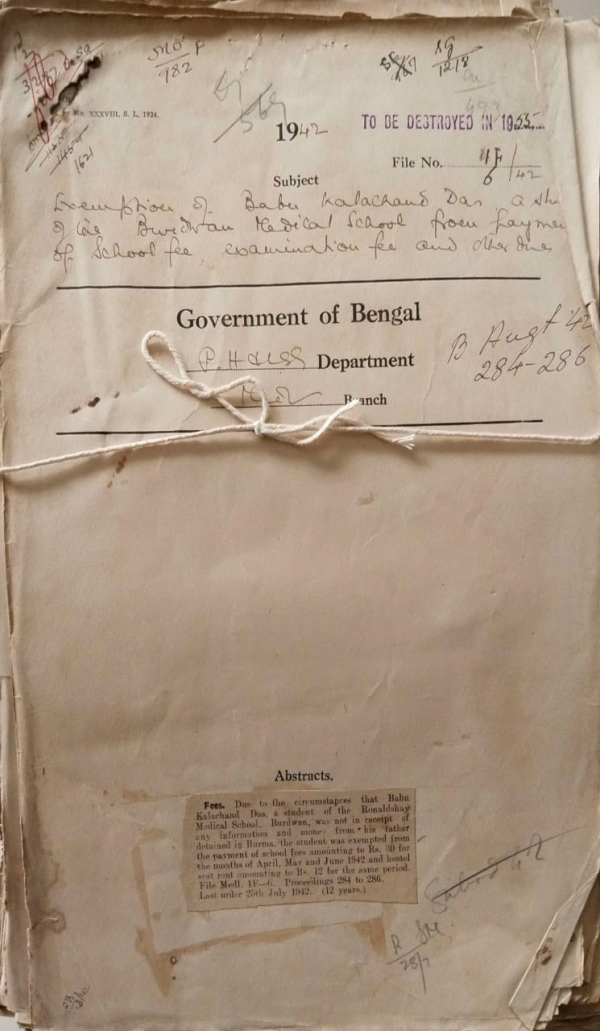 782
569
12/8
No. XXXVIII. S. L., 1924.
1621
1942
TO BE DESTROYED IN 1955
File No. 1F/6/42
Subject
Exemption of Babu Kalachand Das, a stu
of the Burdwan Medical School from payme
of School fee, examination fee and other dues
Government of Bengal
P.H & LSG Department
Branch
B Augt '42
284-286
Abstracts.
Fees. Due to the circumstances that Babu
Kalachand Das, a student of the Ronaldshay
Medical School, Burdwan, was not in receipt of
any information and money from his father
detained in Burma, the student was exempted from
the payment of school fees amounting to Rs. 30 for
the months of April, May and June 1942 and hostel
seat rent amounting to Rs. 12 for the same period.
File Medl. 1F—6. Proceedings 284 to 286.
Last order 25th July 1942. (12 years.)
28/7